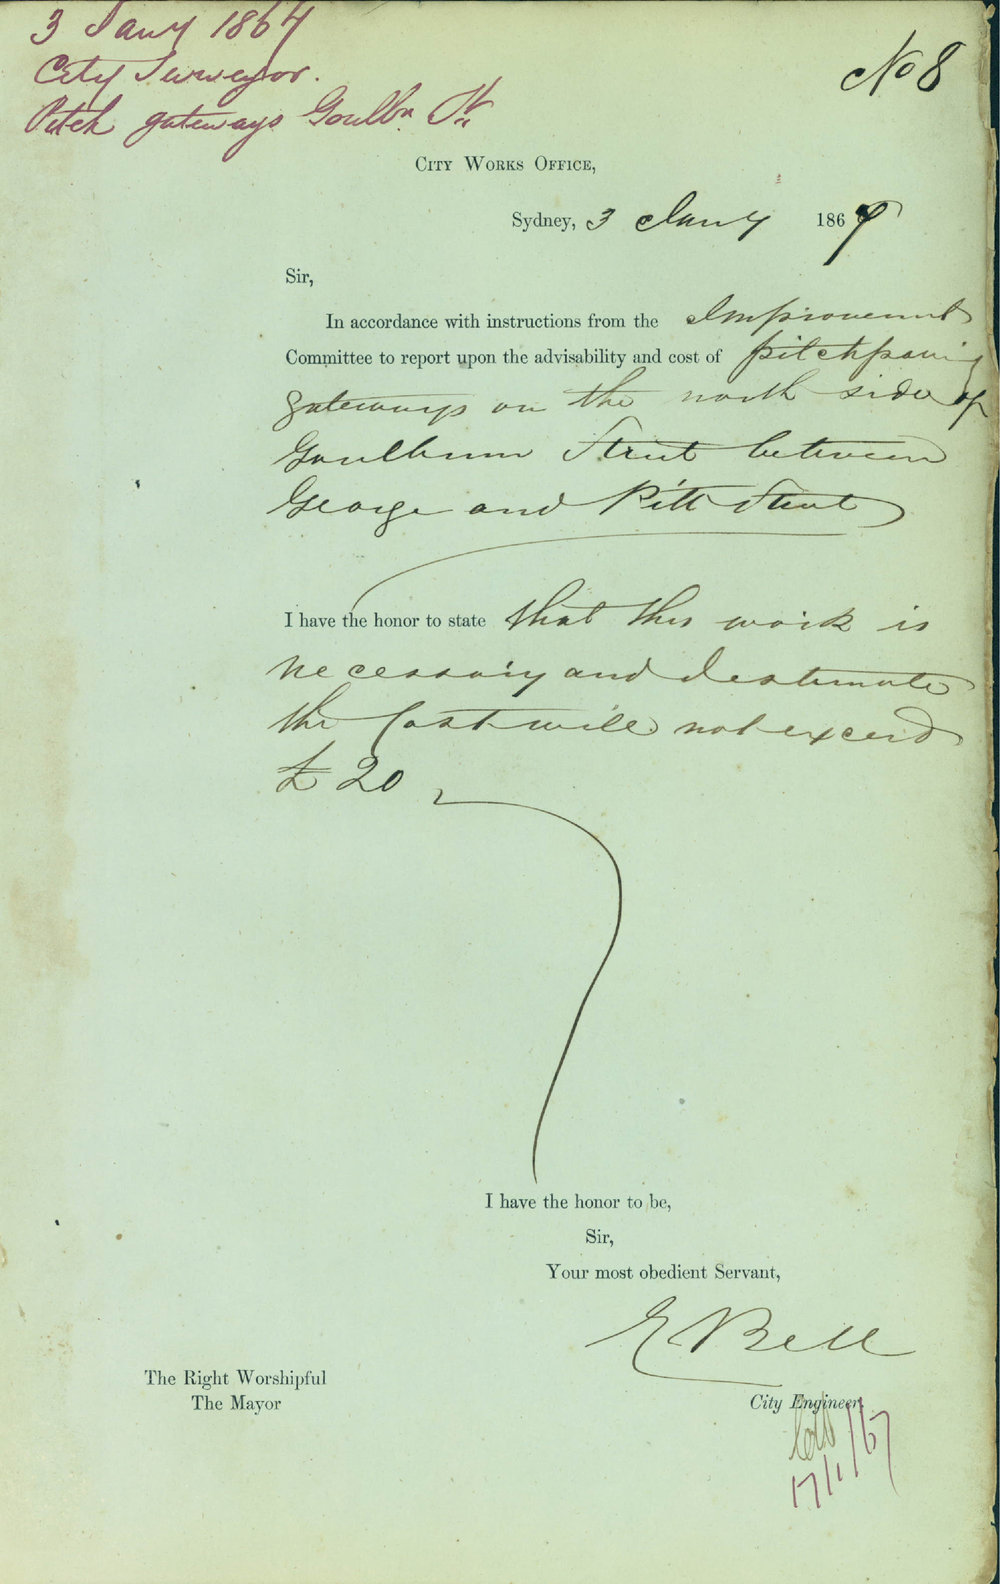 3 Jany 1867
City Surveyor.
Pitch gateways Goulbn St.
No 8
City Works Office,
Sydney, 3 Jany 1867
Sir,
In accordance with instructions from the Improvement
Committee to report upon the advisability and cost of pitchpaving
gateways on the north side of
Goulburn Street between
George and Pitt Street
I have the honor to state that this work is
necessary and I estimate
the Cost will not exceed
£20
I have the honor to be,
Sir,
Your most obedient Servant,
E Bell
The Right Worshipful
The Mayor
City Engineer.
17/1/67